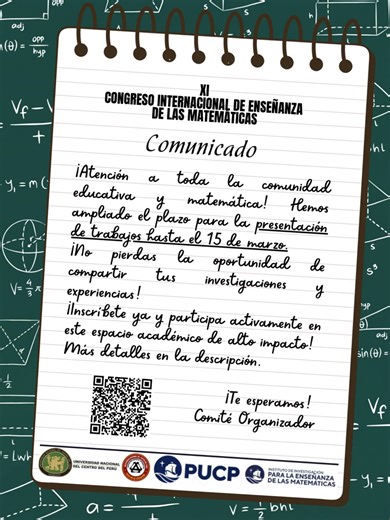 XI
CONGRESO INTERNACIONAL DE ENSEÑANZA
DE LAS MATEMÁTICAS
Comunicado
¡Atención a toda la comunidad
educativa y matemática! Hemos
ampliado el plazo para la presentación
de trabajos hasta el 15 de marzo.
¡No pierdas la oportunidad de
compartir tus investigaciones y
experiencias!
¡Inscríbete ya y participa activamente en
este espacio académico de alto impacto!
Más detalles en la descripción.
¡Te esperamos!
Comité Organizador
UNIVERSIDAD NACIONAL
DEL CENTRO DEL PERÚ
PUCP
INSTITUTO DE INVESTIGACIÓN
PARA LA ENSEÑANZA
DE LAS MATEMÁTICAS